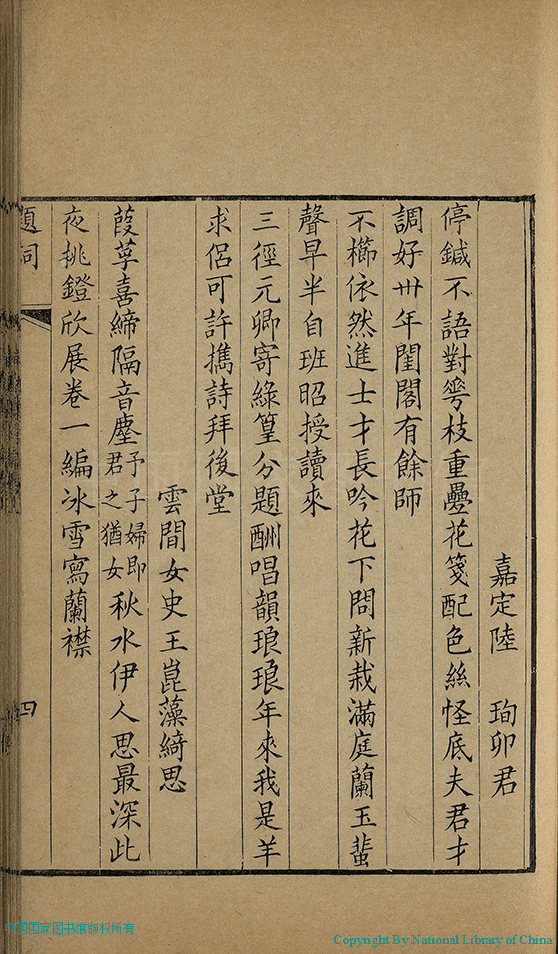 嘉定陸　珣卯君
停鍼不語對菭枝重疊花箋配色絲怪底夫君才
調好卅年閨閣有餘師
不櫛依然進士才長吟花下問新栽滿庭蘭玉蜚
聲早半自班昭授讀來
三徑元卿寄綠篁分題酬唱韻琅琅年來我是羊
求侶可許攜詩拜後堂
雲間女史王崑藻綺思
葭莩喜締隔音塵予子婦即君之猶女秋水伊人思最深此
夜挑鐙欣展卷一編冰雪寫蘭襟
題詞
四
中国国家图书馆版权所有
Copyright By National Library of China